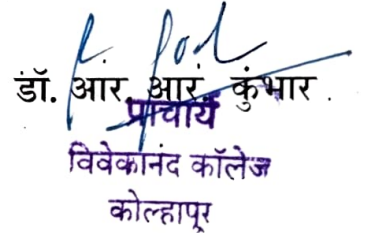 डॉ. आर. आर. कुंभार .
प्राचार्य
विवेकानंद कॉलेज
कोल्हापूर